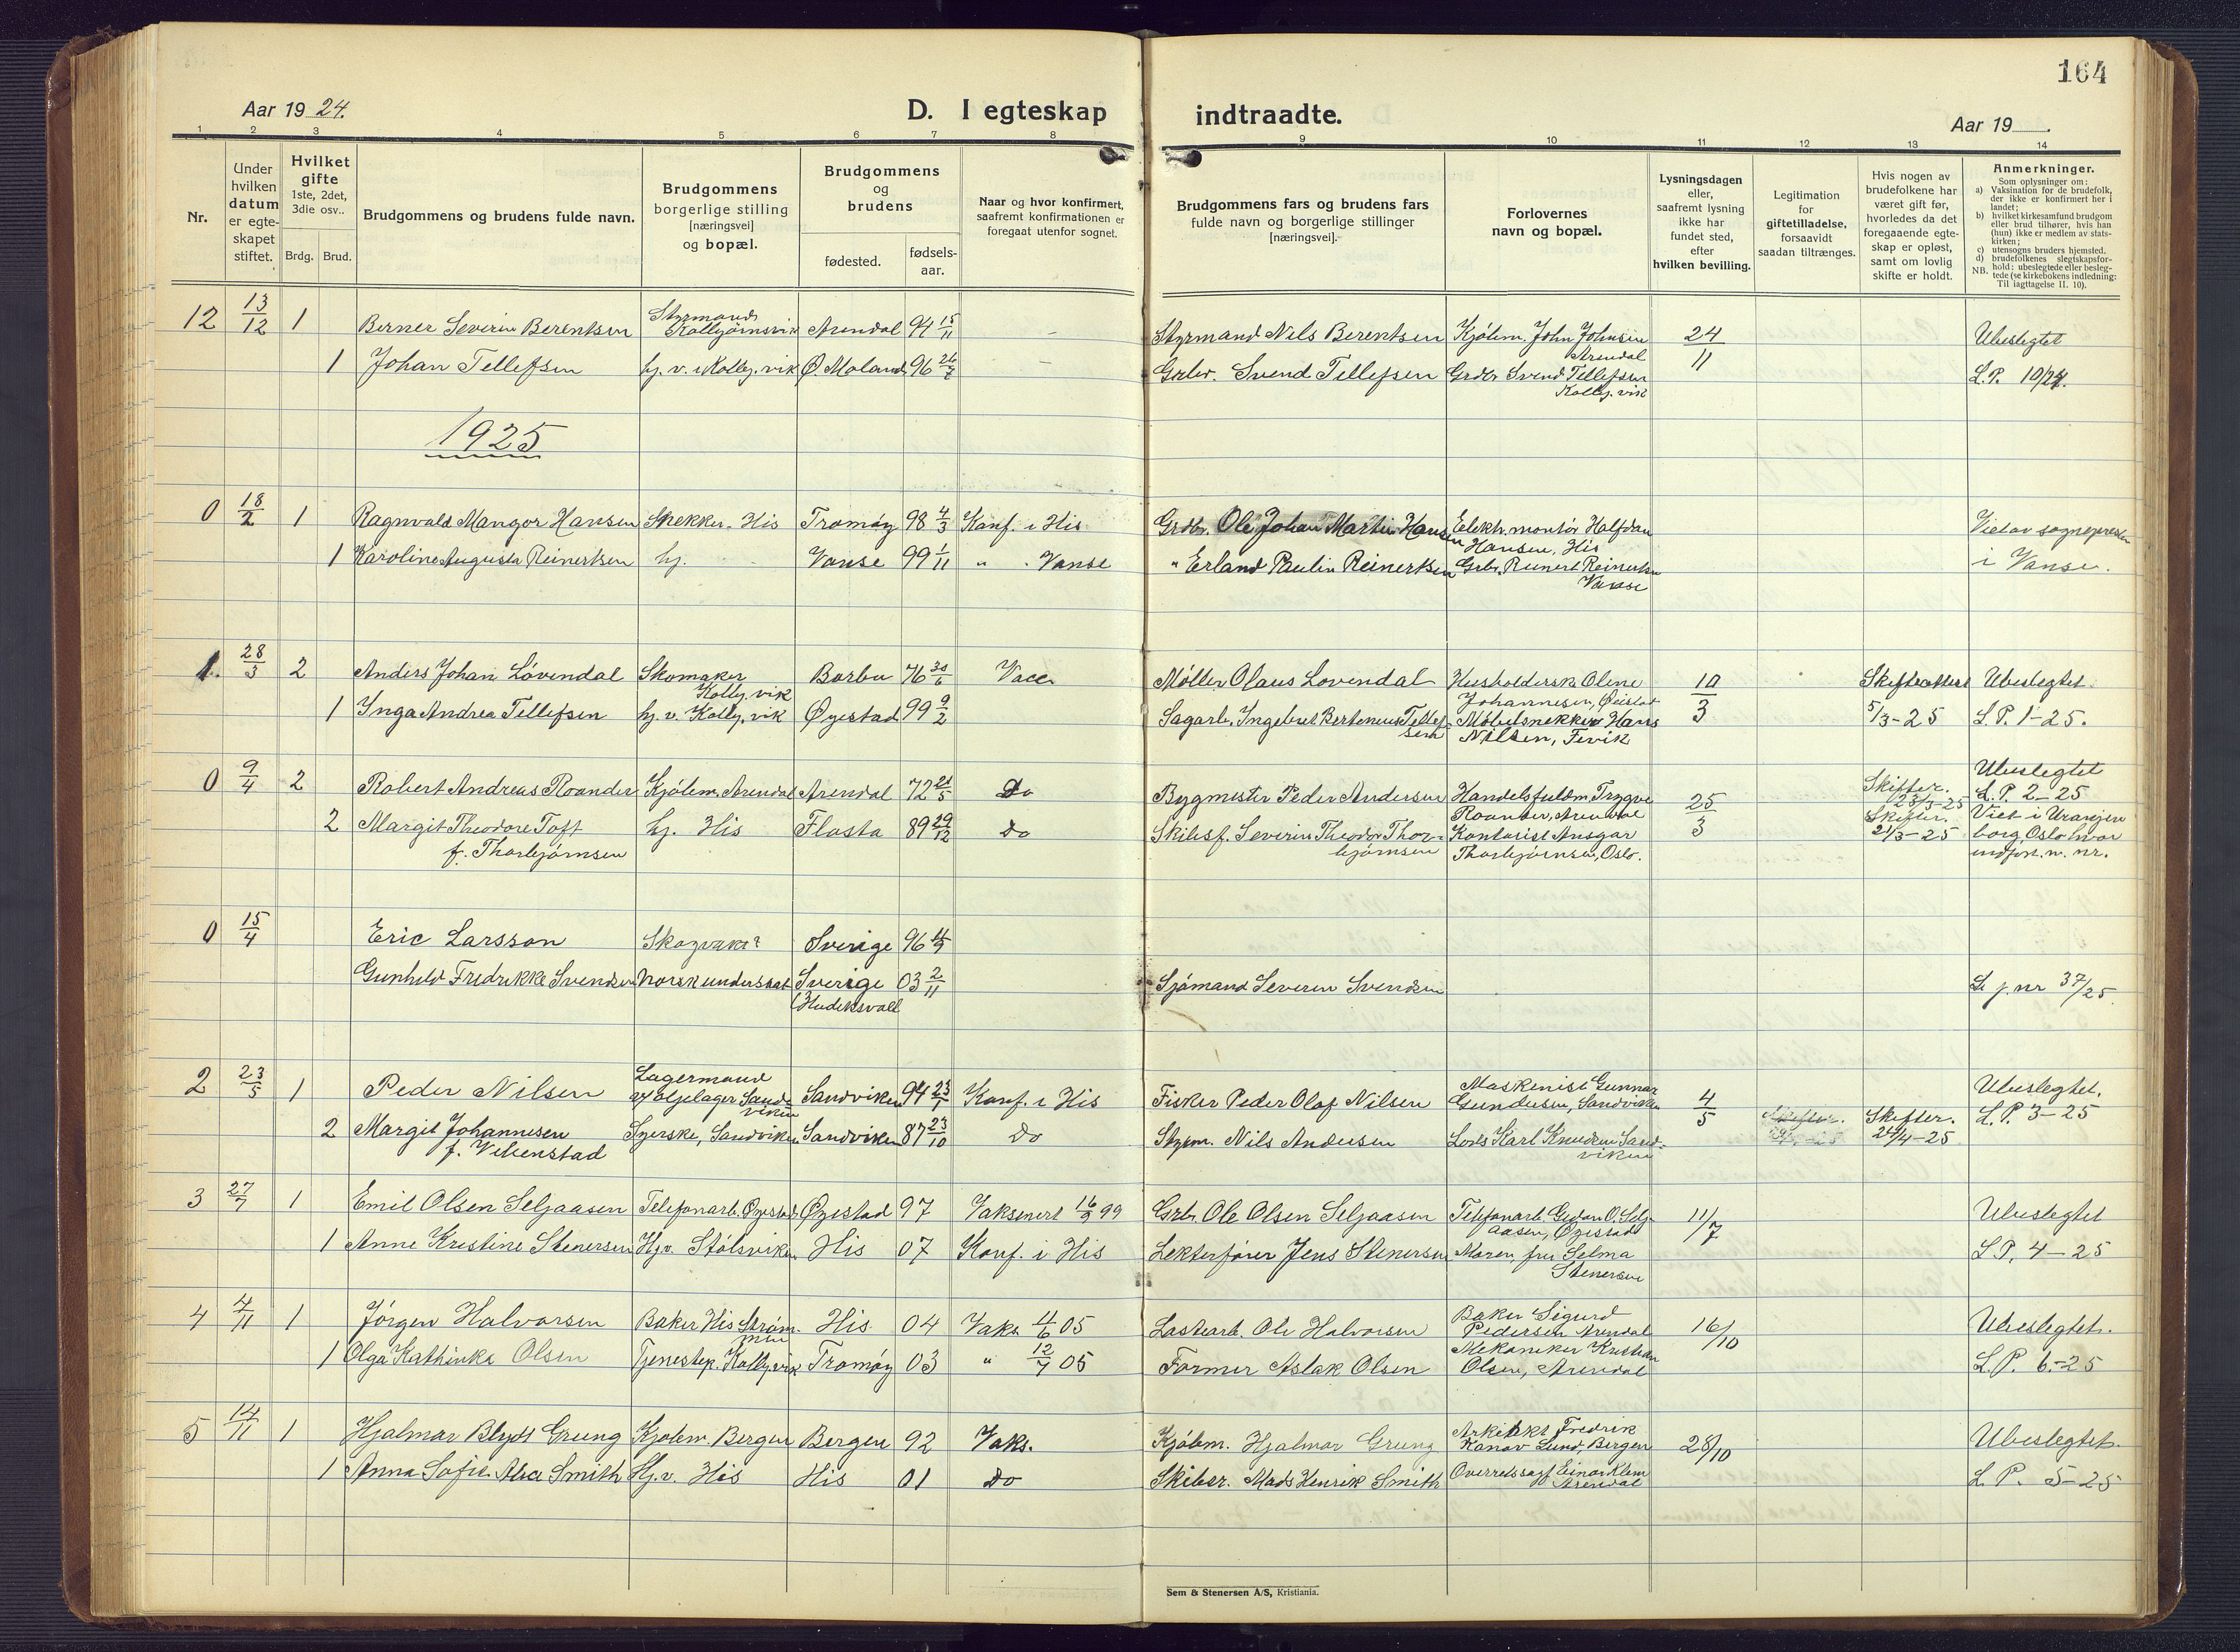 164
Aar 19 24.
D. I egteskap
indtraadte.
Aar 19
1 2 3 4 5 6 7 8 9 10 11 12 13 14
Nr.
Under hvilken datum er egte-skapet stiftet.
Hvilket gifte 1ste, 2det, 3die osv..
Brdg. Brud.
Brudgommens og brudens fulde navn.
Brudgommens borgerlige stilling [næringsvei] og bopæl.
Brudgommens og brudens
fødested.
fødsels-aar.
Naar og hvor konfirmert, saafremt konfirmationen er foregaat utenfor sognet.
Brudgommens fars og brudens fars fulde navn og borgerlige stillinger [næringsvei].
Forlovernes navn og bopæl.
Lysningsdagen eller, saafremt lysning ikke har fundet sted, efter hvilken bevilling.
Legitimation for giftetilladelse, forsaavidt saadan tiltrænges.
Hvis nogen av brudefolkene har været gift før, hvorledes da det foregaaende egte-skap er opløst, samt om lovlig skifte er holdt.
Anmerkninger.
Som oplysninger om:
a) Vaksination for de brudefolk, der ikke er konfirmert her i landet;
b) hvilket kirkesamfund brudgom eller brud tilhører, hvis han (hun) ikke er medlem av stats-kirken;
c) utensogns bruders hjemsted.
d) brudefolkenes slegtskapsfor-hold: ubeslegtede eller besleg-tede (se kirkebokens indledning:
NB. Til iagttagelse II. 10).
12 13/12 1 Berner Severin Berentsen Styrmand Kolbjørnsvik Arendal 94 15/11 - Styrmand Nils Berentsen Kjøbm. John Johnsen Arendal 24/11 Ubeslegtet
1 Johan Tellefsen hj. v. Kolbj.vik Ø. Moland 96 - Grbr. Svend Tellefsen Grdbr Svend Tellefsen Kolbj. vik L.P. 10/24.
1925
0 18/2 1 Ragnvald Mangor Hansen Snekker. His Tromøy 98 4/3 Konf. i His Grdbr. Ole Johan Martin Hansen Elektr. montør Halfdan Hansen, His Viet av sognepresten
1 Karoline Augusta Reinertsen hj. Vanse 99 1/11 " Vanse " Erland Paulin Reinertsen Grbr. Reinert Reinertsen Vanse i Vanse.
1. 28/3 2 Anders Johan Løvendal Skomaker Kolbj. vik Barbu 76 30/6 Vacc. Møller Olaus Lovendal Husholderske Oline Johannesen, Øiestad 10/3 Skifteattest Ubeslegtet.
1 Inga Andrea Tellefsen hj. v. Kolbj. vik Øyestad 99 9/2 Sagarb. Ingebret Bertenius Tellefsen Møbelsnekker Hans Nilsen, Fevik 5/3-25 L.P. 1-25.
0 9/4 2 Robert Andreas Roander Kjøbm. Arendal Arendal 72 21/5 Do Bygmester Peder Andersen Handelsfuldm. Trygve Roander, Arendal 25/3 Skifter. 23/3-25 Ubeslegtet L.P. 2-25
2 Margit Theodore Toft f. Thorbjørnsen hj. His Flosta 89 29/12 Do Skibsf. Severin Theodor Thorbjørnsen Kontorist Ansgar Thorbjørnsen, Oslo. Skifter. 21/3-25 Viet i Uranienborg, Oslo hvor indført. m. nr.
0 15/4 Eric Larsson Skogvakt? Sverige 96
Gunhild Fredrikke Svendsen Norsk undersaat Sverige (Hudiksvall 03 2/11 Sjømand Severin Svendsen Se j. nr 37/25.
2 23/5 1 Peder Nilsen Lagermand ved Oljelager Sandviken Sandviken 94 23/1 Konf. i His Fisker Peder Olaf Nilsen Maskinist Gunnar Gundersen, Sandviken 4/5 Ubeslegtet.
2 Margit Johannesen f. Vibenstad Syerske, Sandviken Sandviken 87 23/10 Do Styrm. Nils Andersen Lods Karl Knudsen Sandviken Skifter. 24/4-25 L.P. 3-25
3 27/7 1 Emil Olsen Seljaasen Telefonarb. Øyestad Øyestad 97 Vaksinert 16/9 99 Grbr. Ole Olsen Seljaasen Telefonarb. O. Seljaasen, Øyestad 11/7 Ubeslegtet
1 Anne Kristine Stenersen Hjv. Stølsviken His 07 Konf. i His Lekterfører Jens Stenersen Moren, fru Selma Stenersen L.P. 4-25
4 4/11 1 Jørgen Halvorsen Baker His Strømmen His 04 Vaks 4/6 05 Lastearb. Ole Halvorsen Baker Sigurd Pedersen Arendal 16/10 Ubeslegtet.
1 Olga Kathinka Olsen Tjenestep. Kolbj.vik Tromøy 03 " 12/7 05 Former Aslak Olsen Mekaniker Kristian Olsen, Arendal L.P. 6-25
5 14/11 1 Hjalmar Blydt Grung Kjøbm. Bergen Bergen 92 Vaks. Kjøbm. Hjalmar Grung Arkitekt Fredrik Konow Lund, Bergen 28/10 Ubeslegtet.
1 Anna Sofie Smith Hj.v. His His 01 Do Skibsr. Mads Henrik Smith Overretssagf. Einar Klem Arendal L.P. 5-25
Sem & Stenersen A/S, Kristiania.